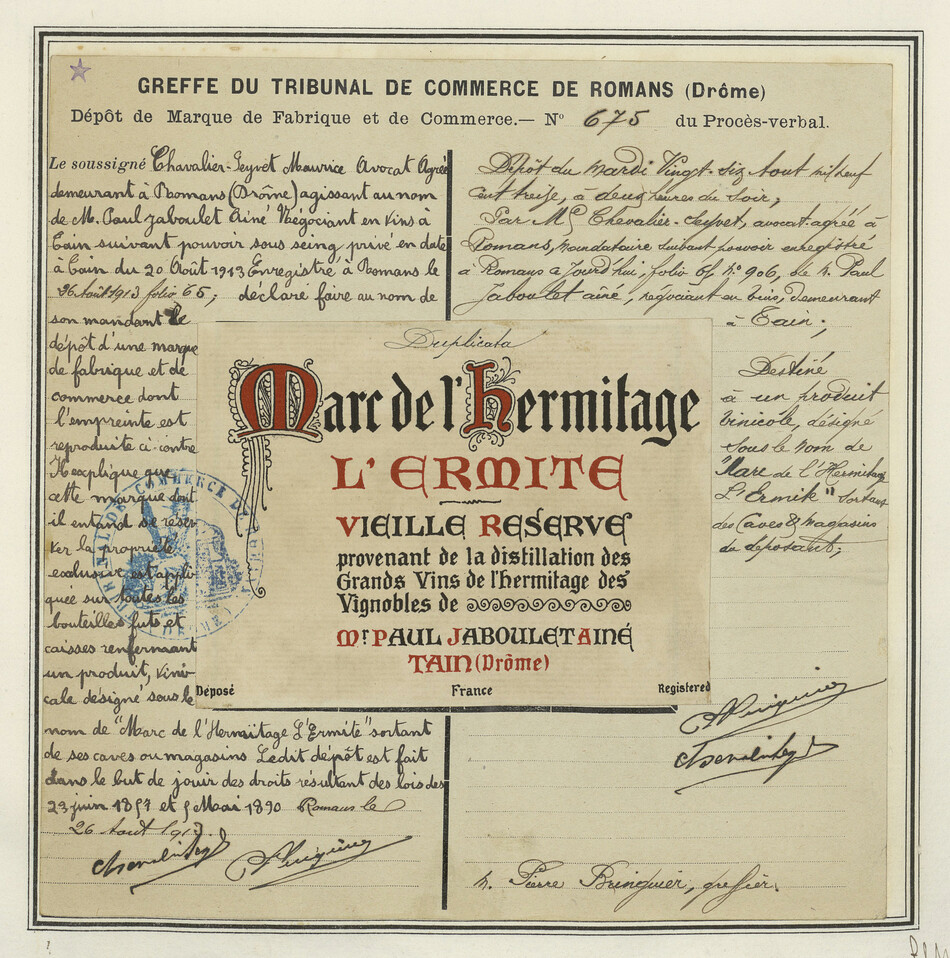 GREFFE DU TRIBUNAL DE COMMERCE DE ROMANS (Drôme)
Dépôt de Marque de Fabrique et de Commerce.— N° 675 du Procès-verbal.
Le soussigné Chavalier-Seyvet Maurice Avocat Agréé
demeurant à Romans (Drôme) agissant au nom
de M. Paul Jaboulet Aîné Négociant en vins à
Tain suivant pouvoir sous seing privé en date
à Tain du 20 Août 1913 Enregistré à Romans le
26 Août 1913 folio 65, déclaré faire au nom de
son mandant le
dépôt d'une marque
de fabrique et de
commerce dont
l'empreinte est
reproduite ci-contre
Il explique que
cette marque dont
il entend se réser
ver la propriété
exclusive est appli
quée sur toutes les
bouteilles futs et
caisses renfermant
un produit, vini
cole désigné sous le
nom de "Marc de l'Hermitage L'Ermite" sortant
de ses caves ou magasins Ledit dépôt est fait
dans le but de jouir des droits résultant des lois des
23 juin 1857 et 5 Mai 1890 Romans le
26 Août 1913
Duplicata
Marc de l'Hermitage
L'ERMITE
VIEILLE RESERVE
provenant de la distillation des
Grands Vins de l'hermitage des
Vignobles de
Mr. PAUL JABOULET AINÉ
TAIN (Drôme)
Déposé France Registered
Dépôt du Mardi Vingt-six Aout mil neuf
cent treize, à deux heures du soir,
Par Me Chevalier-Seyvet, avocat-agréé à
Romans, mandataire suivant pouvoir enregistré
à Romans aujourd'hui, folio 65 N° 906, de M. Paul
Jaboulet aîné, négociant en vins, demeurant
à Tain;
Destiné
à un produit
vinicole, désigné
sous le nom de
"Marc de l'Hermitage
L'Ermite" sortant
des Caves & magasins
du déposant;
Pierre Bringuier, greffier.